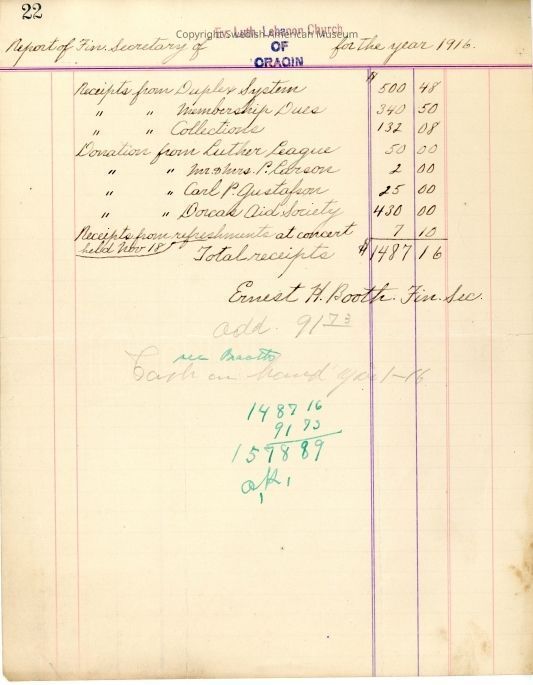 22
Ev. Luth. Lebanon Church
Copyright Swedish American Museum
Report of Fin. Secretary of OF for the year 1916.
CRAGIN
$
Receipts from Duplex System 500 48
" " Membership Dues 340 50
" " Collections 132 08
Donation from Luther League 50 00
" " Mr & Mrs. P. Larson 2 00
" " Carl P. Gustafson 25 00
" " Dorcas Aid Society 430 00
Receipts from refreshments at concert 7 10
held Nov 18
Total receipts $1487 16
Ernest H. Booth. Fin. Sec.
add. 91 73
see
Cash on hand 1-16
1487 16
91 73
1578 89
O.K.